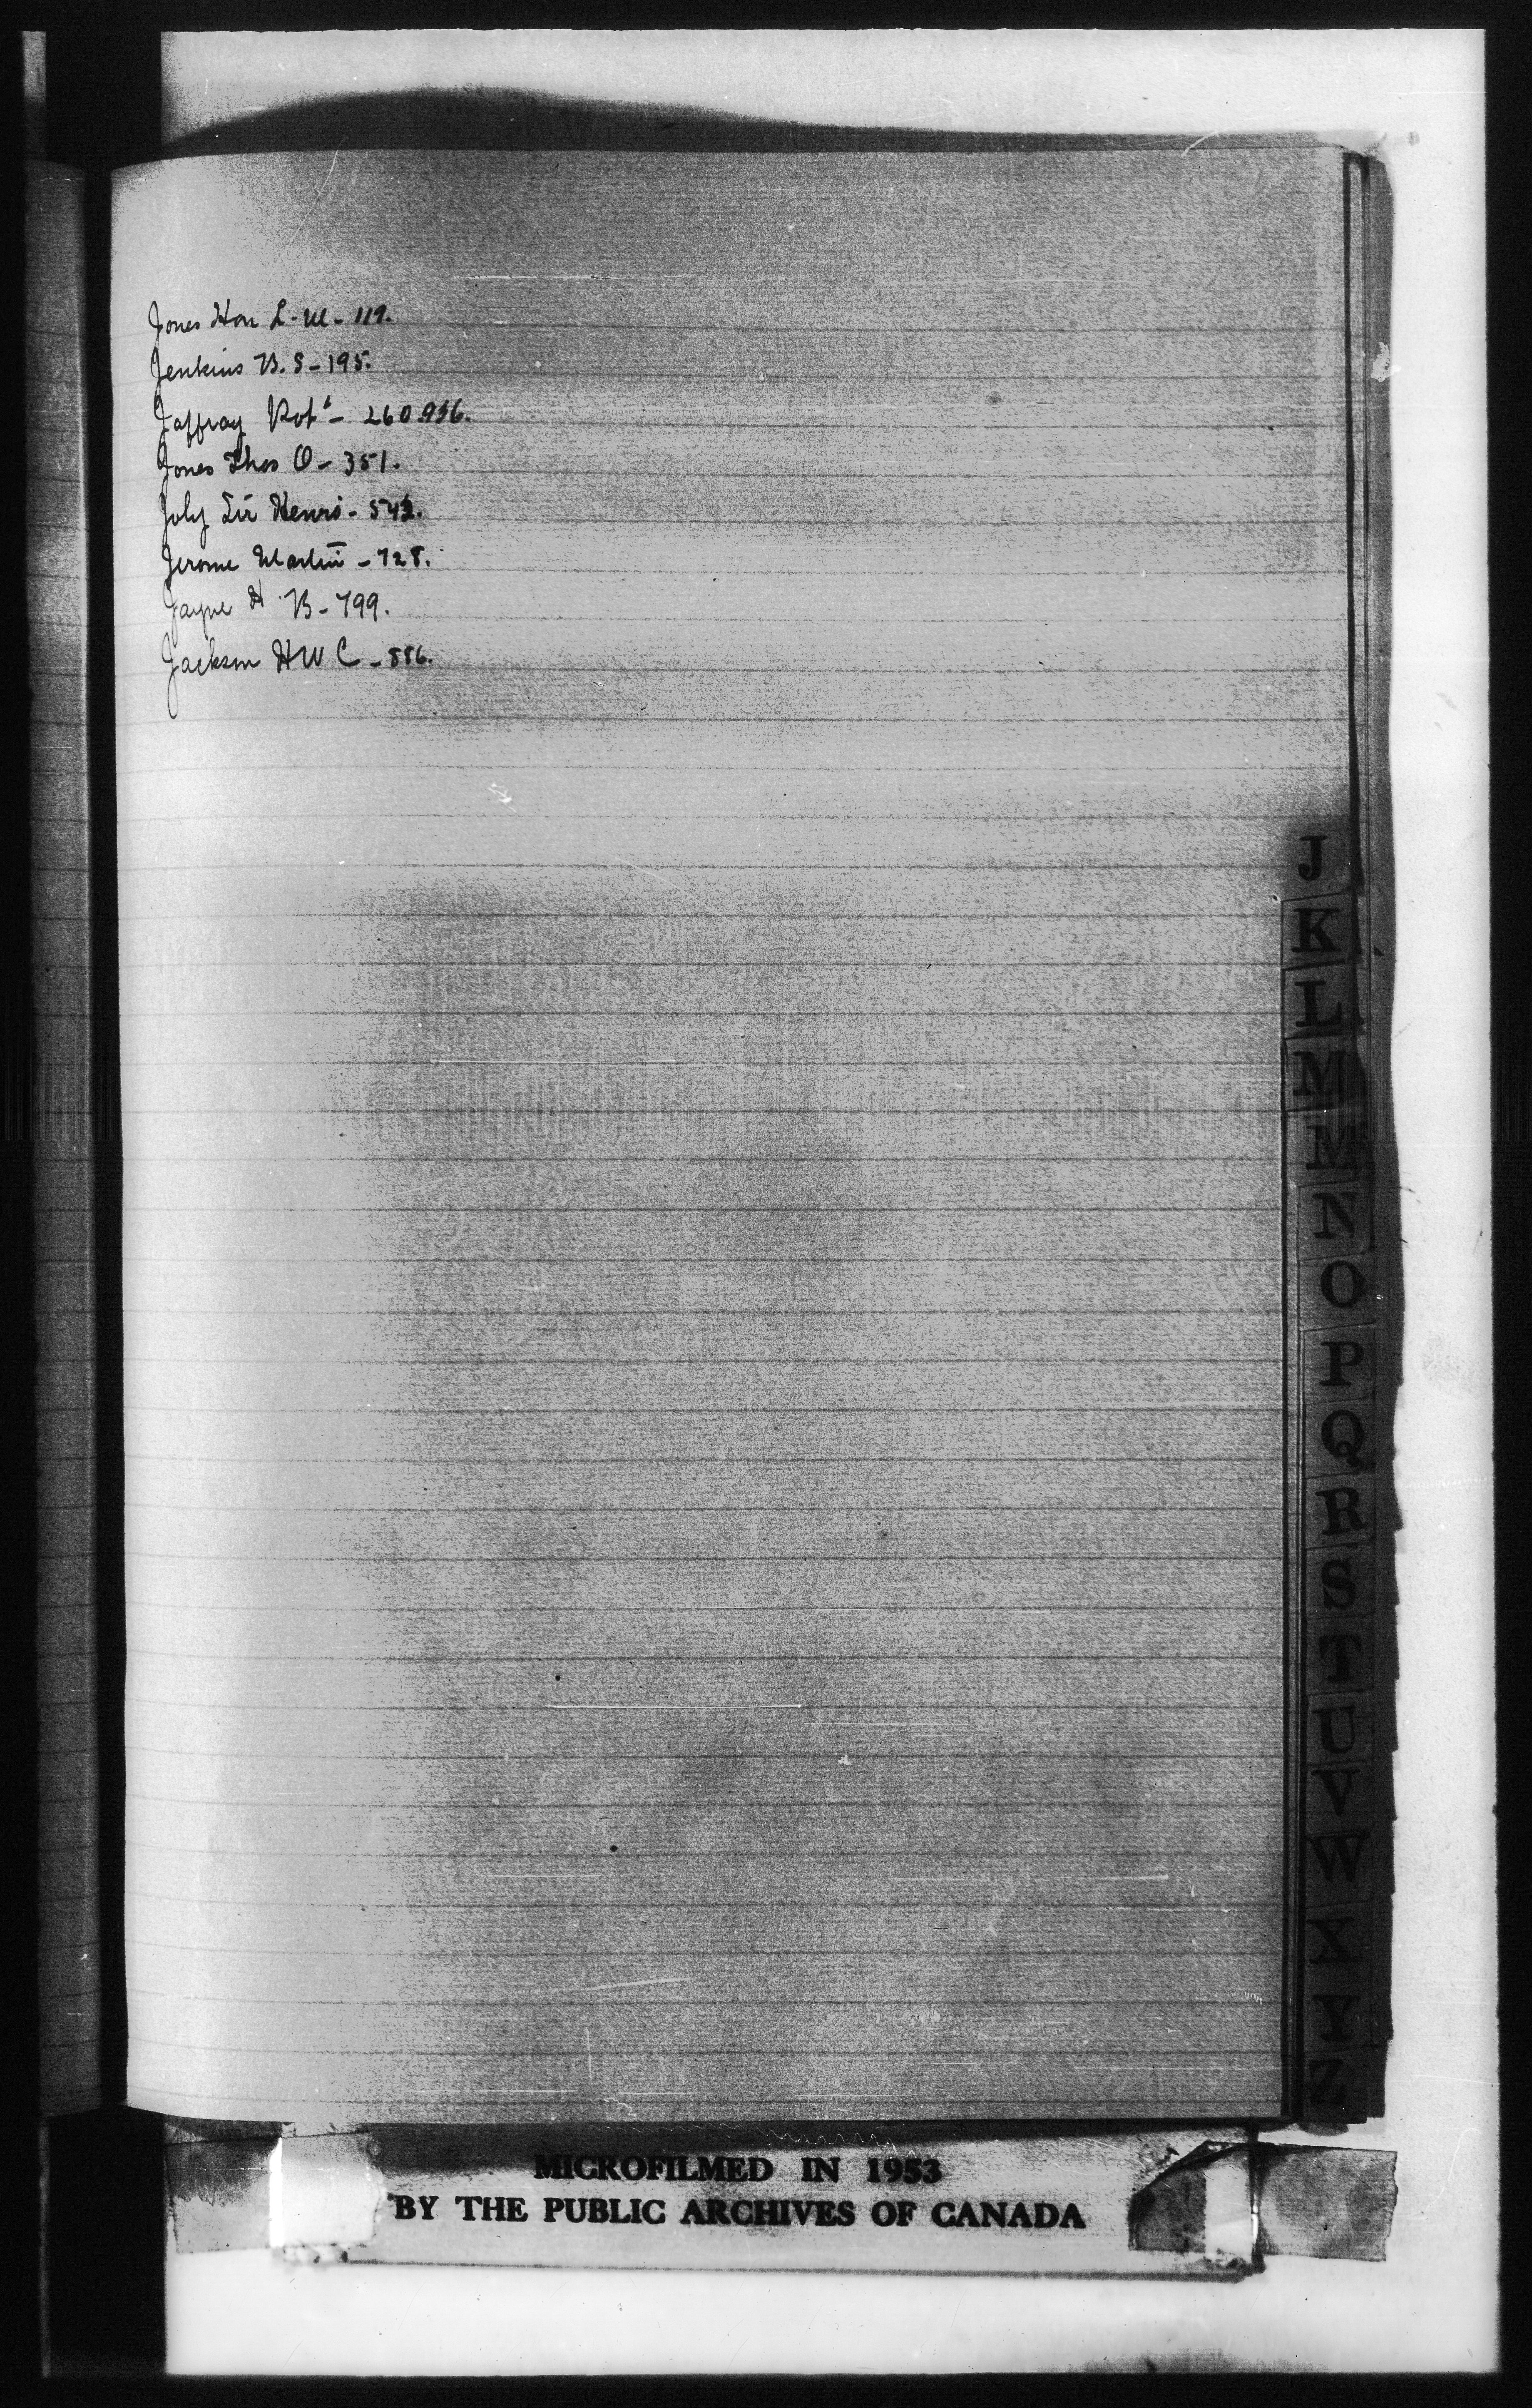 Jones Hon L. M - 119.
Jenkins B. S - 195.
Jaffray Robt - 260.936.
Jones Thos O - 351.
Joly Sir Henri - 542.
Jerome Martin - 728.
Jayne H B - 799.
Jackson H W C - 886.
J
K
L
M
M
N
O
P
Q
R
S
T
U
V
W
X
Y
Z
MICROFILMED IN 1953
BY THE PUBLIC ARCHIVES OF CANADA